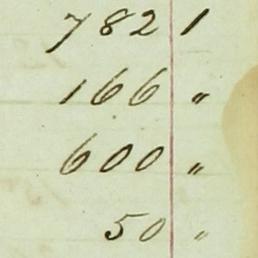 782 1
166 "
600 "
50 "